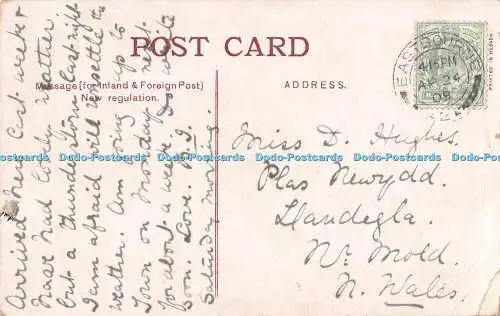 POST CARD
Message (for Inland & Foreign Post)
New regulation.
ADDRESS.
EASTBOURNE
415 PM
24
09
PRINTED IN
Arrived here last week &
have had lovely weather
but a thunderstorm last night
I am afraid will unsettle the
weather. Am going up to
Town on Monday next
for about a week. Do write
soon. Love.
Saturday morning.
Miss D. Hughes.
Plas Newydd.
Llandegla.
Nr. Mold.
N. Wales.
Dodo-Postcards Dodo-Postcards Dodo-Postcards Dodo-Postcards Dodo-Postcards